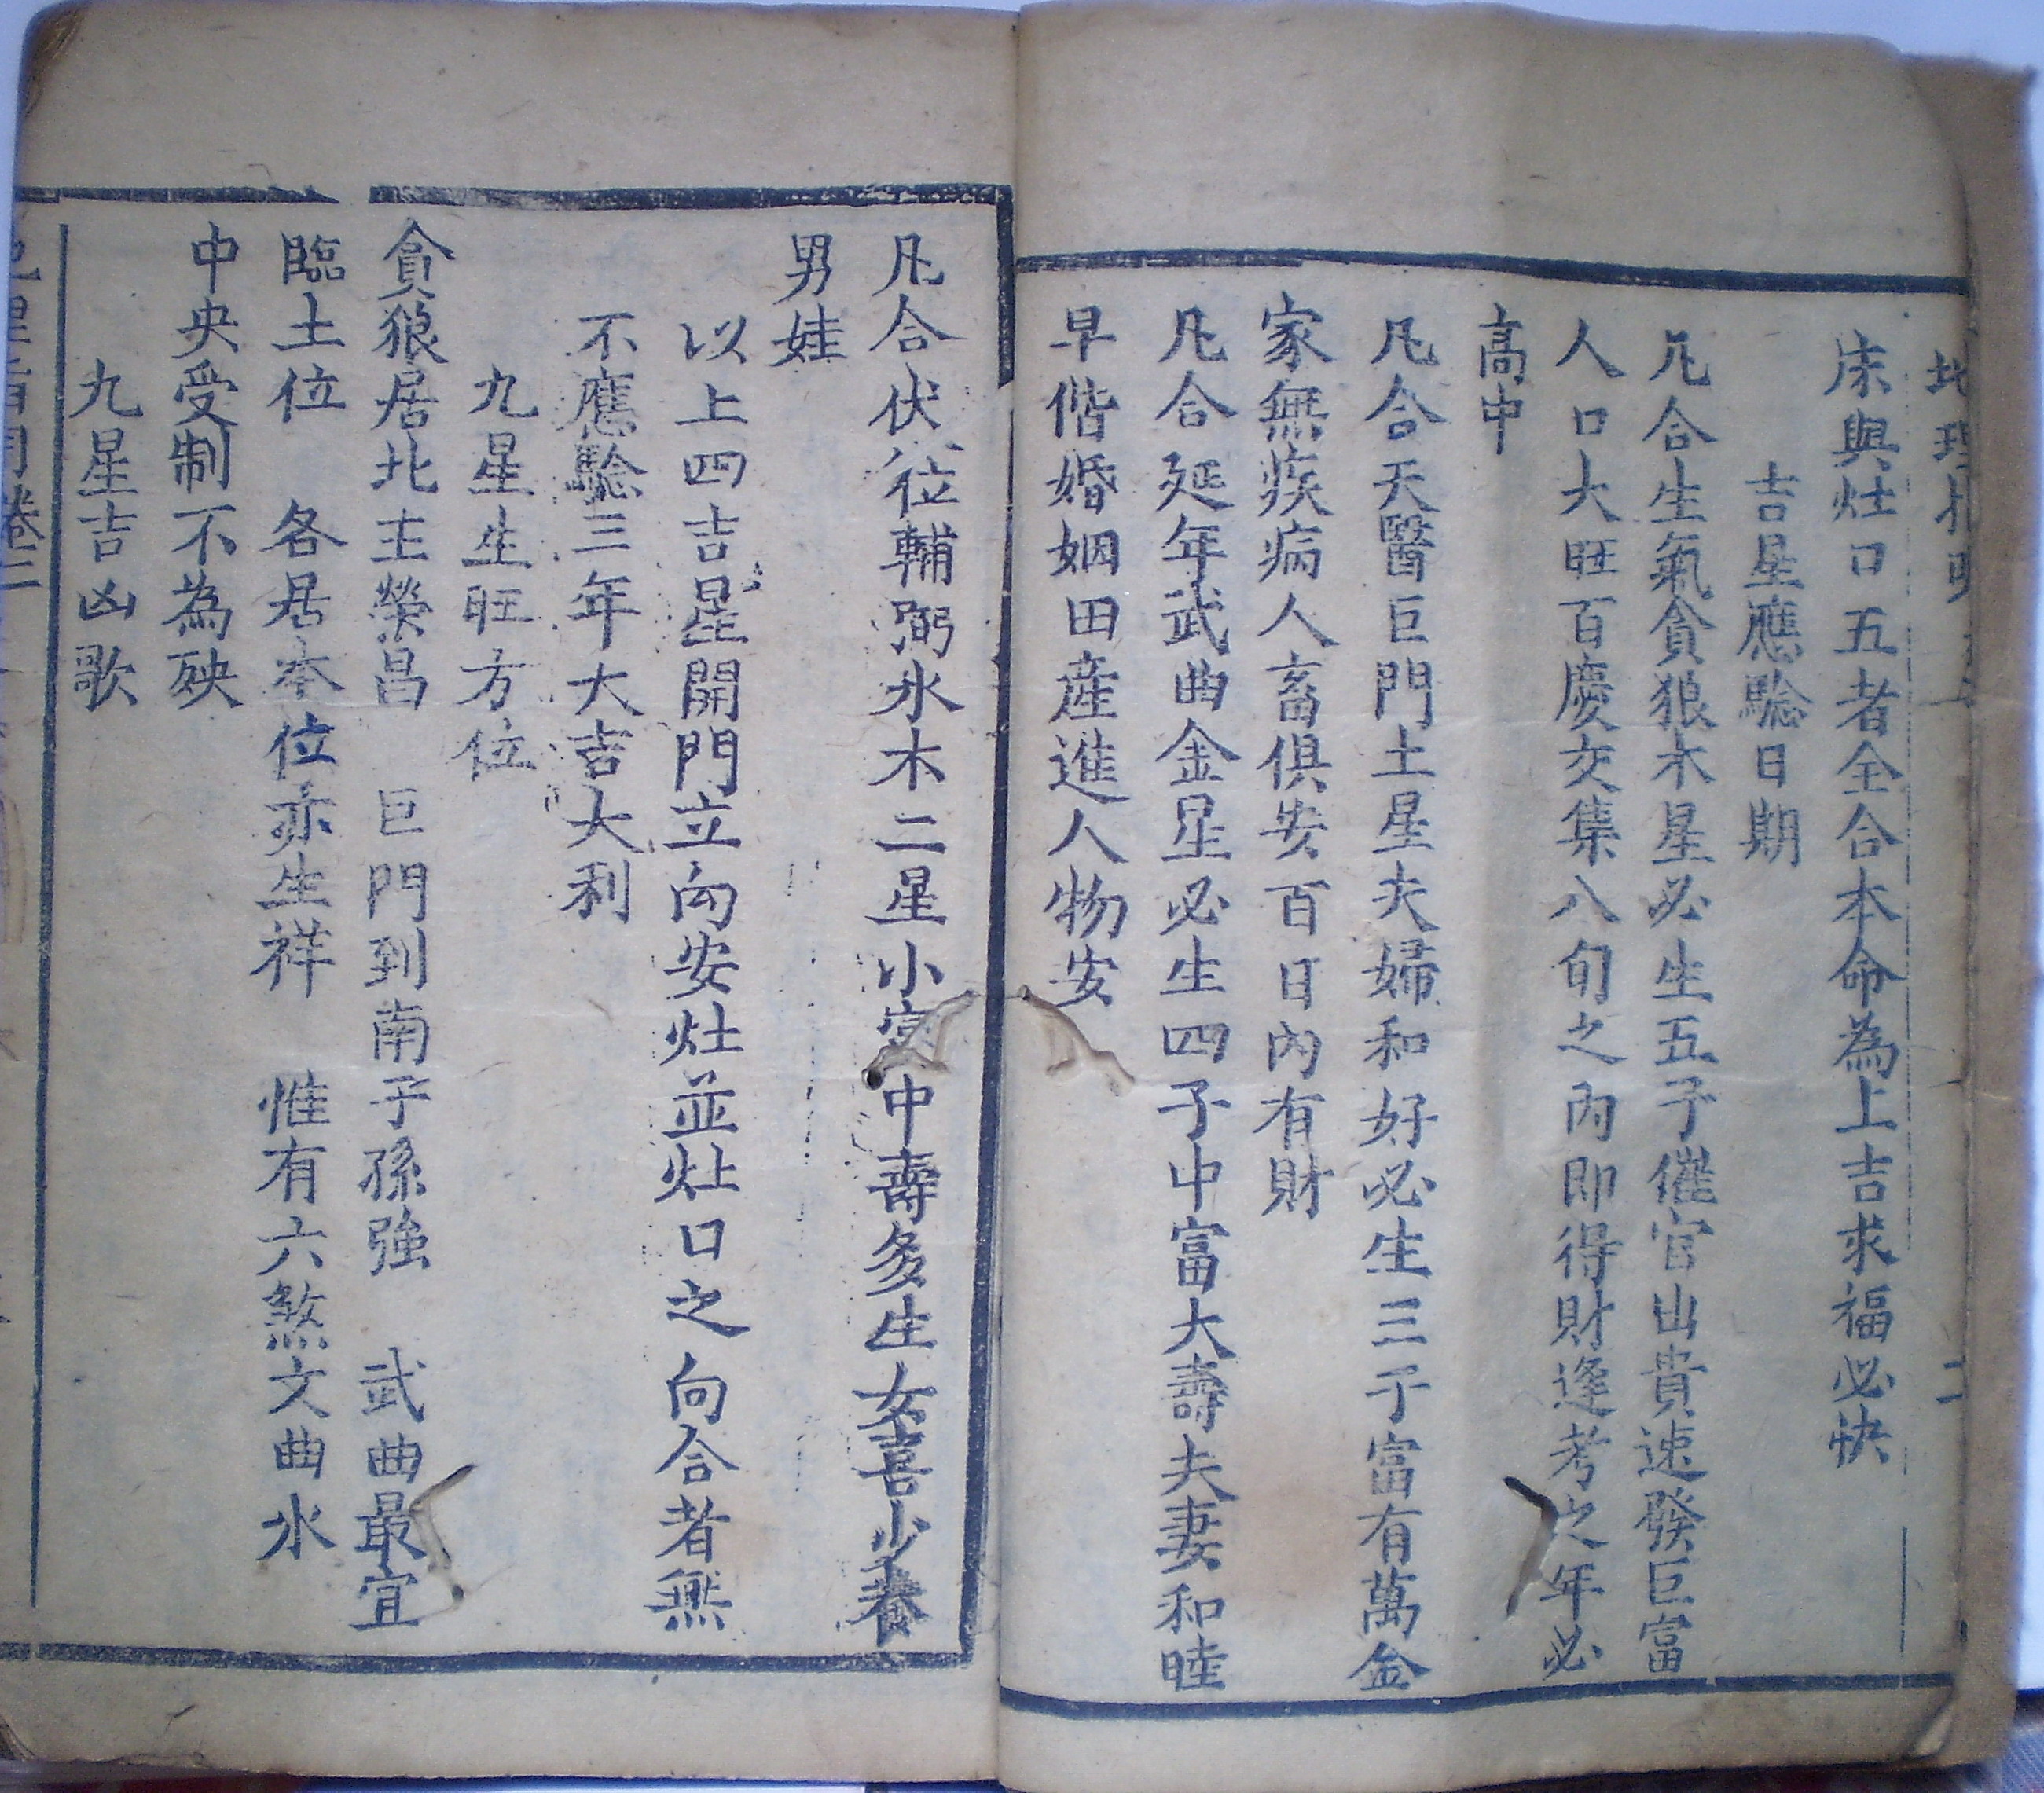 地理指明
二
床與灶口五者全合本命為上吉求福必快
吉星應驗日期
凢合生氣貪狼木星必生五子催官出貴速發巨富
人口大旺百慶交集八旬之內即得財逢考之年必
高中
凢合天醫巨門土星夫婦和好必生三子富有萬金
家無疾病人畜俱安百日內有財
凢合延年武曲金星必生四子中富大壽夫妻和睦
早偕婚姻田產進人物安
凢合伏位輔弼水木二星小富中壽多生女喜少養
男娃
以上四吉星開門立向安灶並灶口之向合者無
不應驗三年大吉大利
九星生旺方位
貪狼居北主榮昌 巨門到南子孫強 武曲最宜
臨土位 各居本位亦生祥 惟有六煞文曲水
中央受制不為殃
九星吉凶歌
卷二